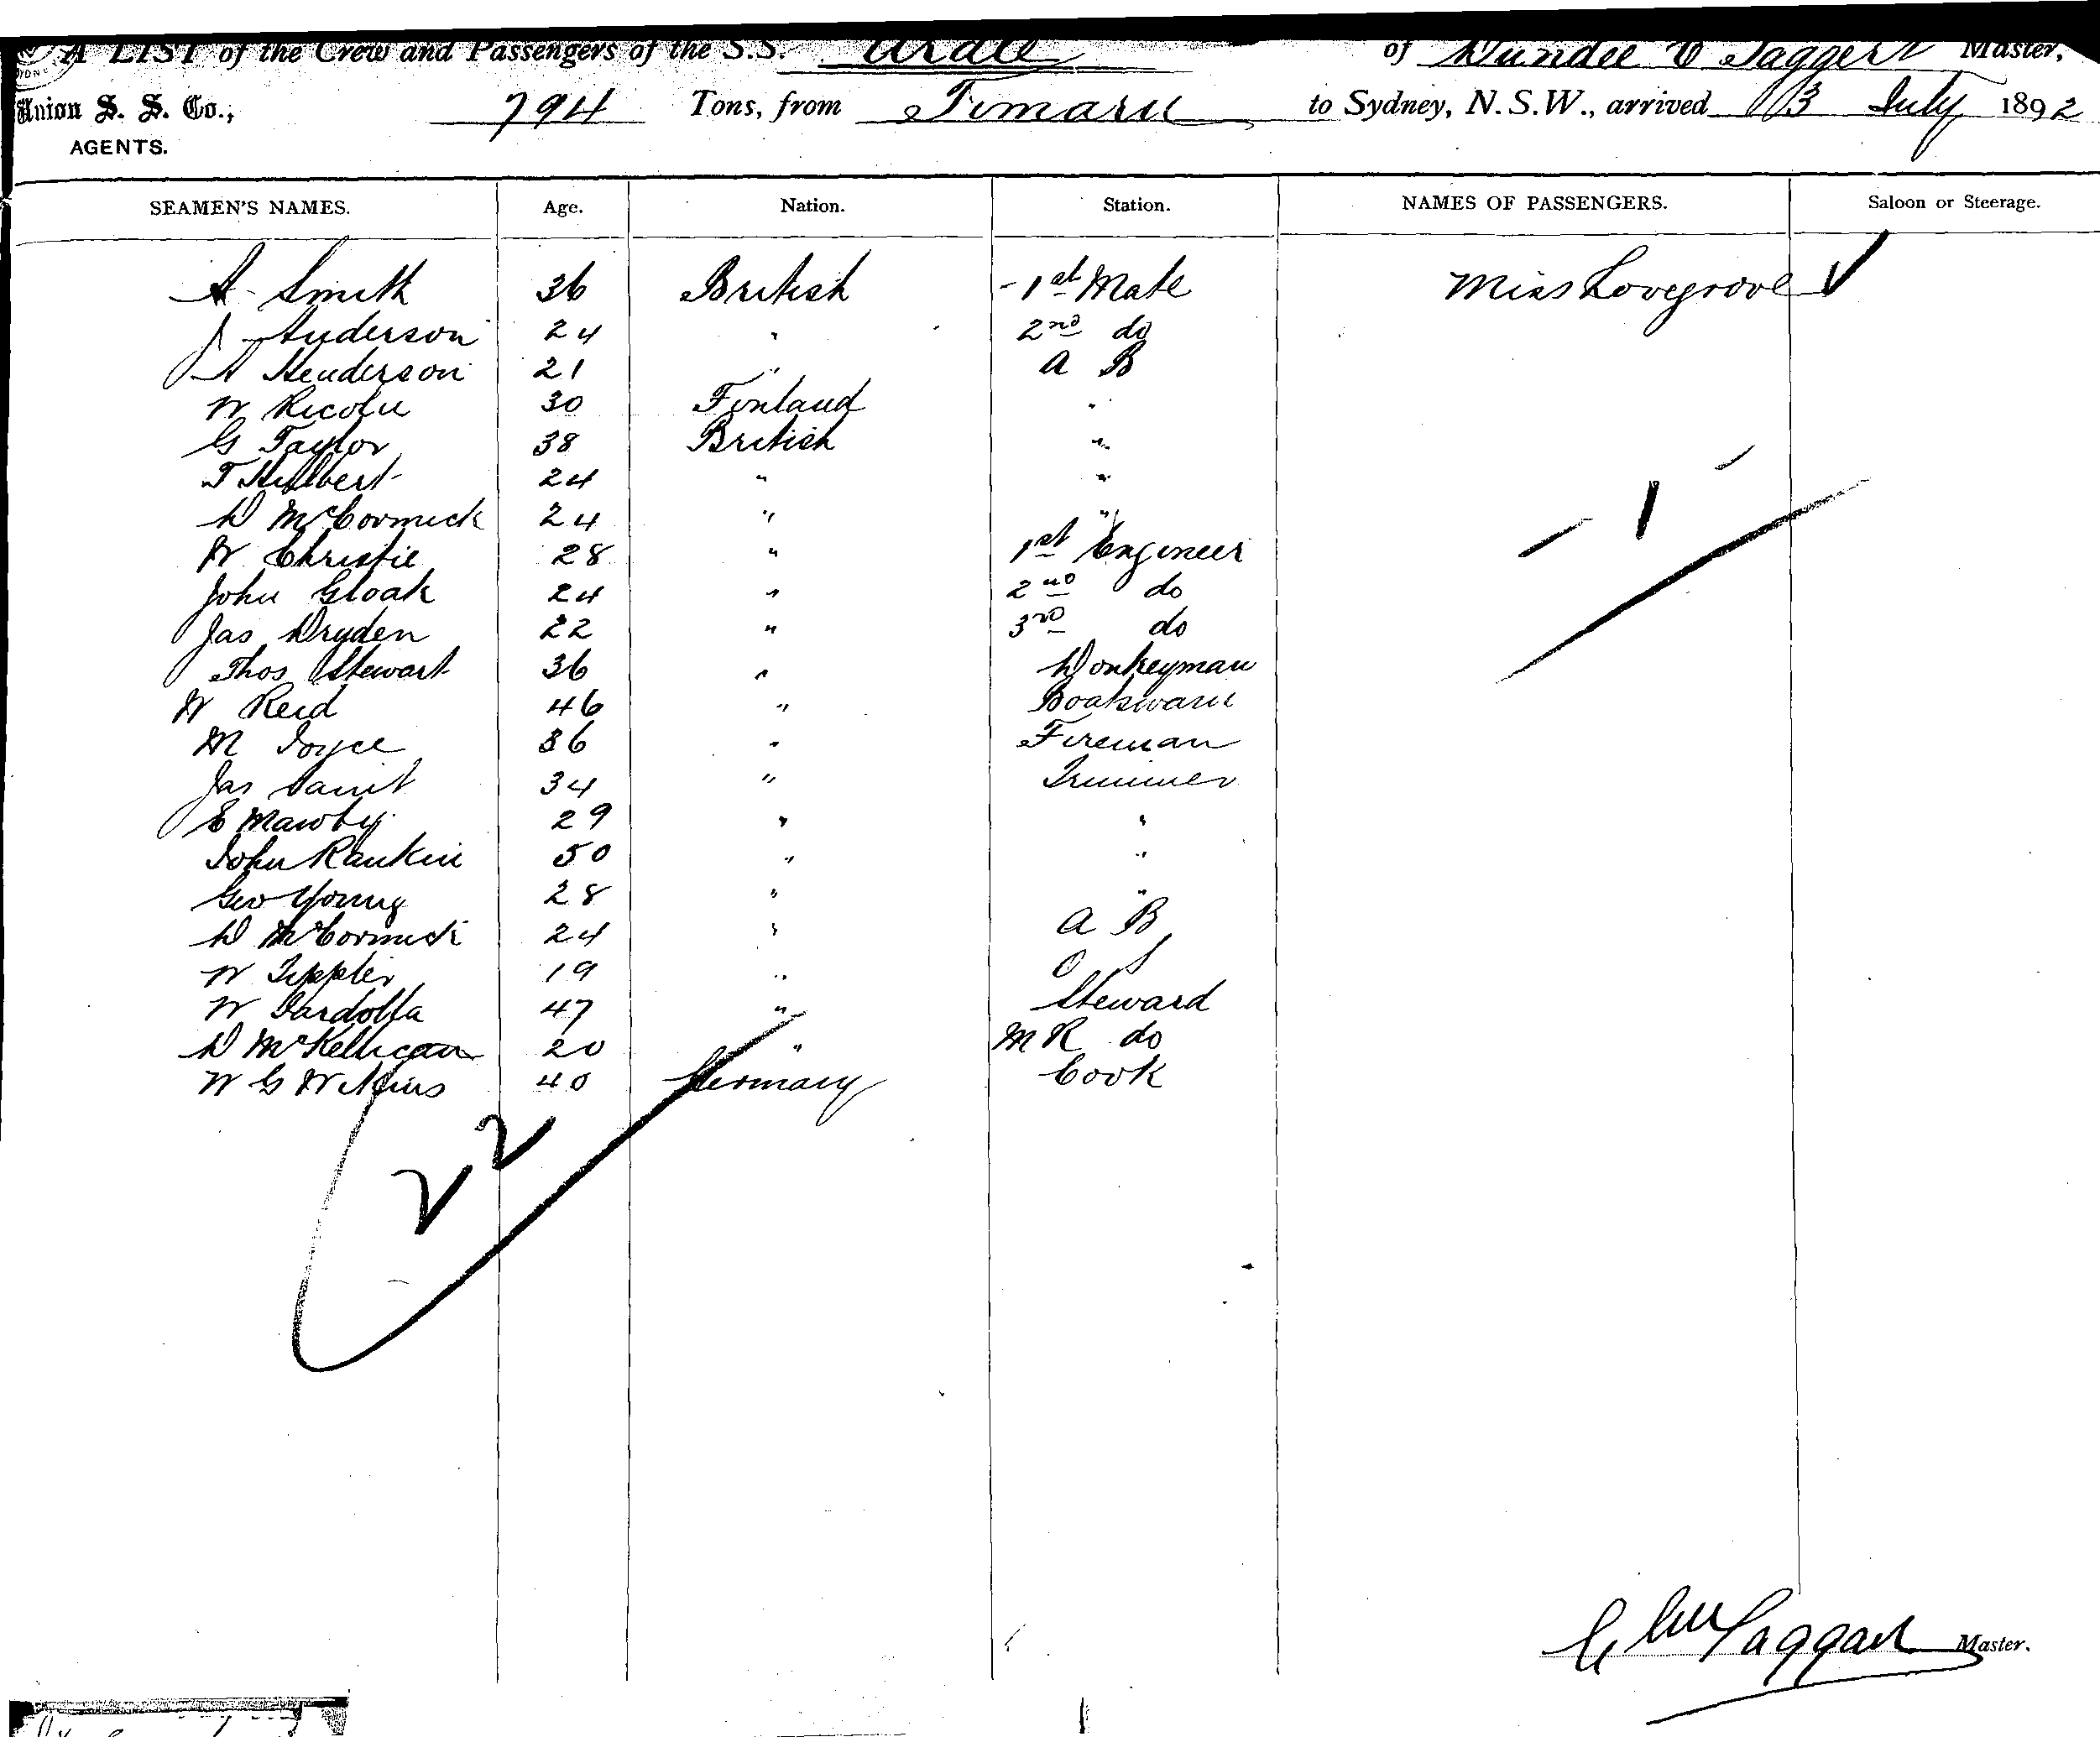 A LIST of the Crew and Passengers of the S.S. of Dundee Taggert Master,
Union S. S. Co., 794 Tons, from Timaru to Sydney, N.S.W., arrived 3 July 1892
AGENTS.
SEAMEN'S NAMES. Age. Nation. Station. NAMES OF PASSENGERS. Saloon or Steerage.
A Smith 36 British 1st Mate Miss Lovegrove
J Anderson 24 " 2nd do
A Henderson 21 " A B
W 30 Finland "
G Taylor 38 British "
T Hulbert 24 " "
D McCormick 24 " "
W Christie 28 " 1st Engineer
John Gloak 24 " 2nd do
Jas Dryden 22 " 3rd do
Thos Stewart 36 " Donkeyman
W Reid 46 " Boatswain
M Joyce 36 " Fireman
Jas 34 " Trimmer
E Mawby 29 " "
John Rankin 50 " "
Geo Young 28 " "
D McCormick 24 " A B
W Tippler 19 " O S
W 47 " Steward
D McKelligan 20 " M R do
W G 40 Germany Cook
1
22
Taggart Master.